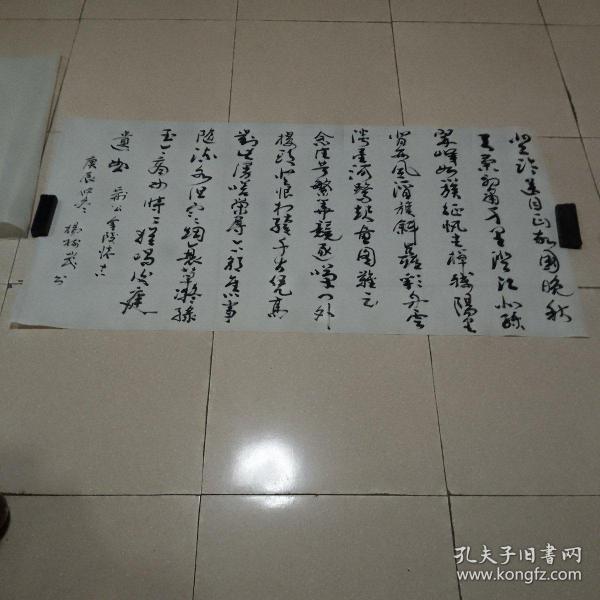 登临送目正故国晚秋
天气初肃千里澄江似练
翠峰如簇征帆去棹残阳里
背西风酒旗斜矗彩舟云
淡星河鹭起画图难足
念往昔繁华竞逐叹门外
楼头悲恨相续千古凭高
对此漫嗟荣辱六朝旧事
随流水但寒烟衰草凝绿
至今商女时时犹唱后庭
遗曲
庚辰
孔夫子旧书网
www.kongfz.com